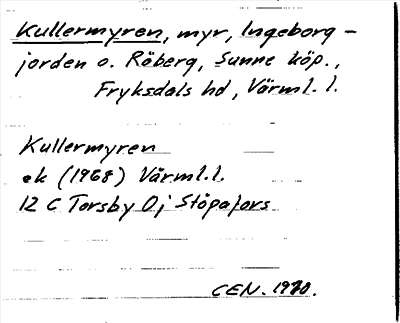 Kullermyren, myr, Ingeborg-
jorden o. Råberg, Sunne köp.,
Fryksdals hd, Värml. l.
Kullermyren
ek (1968) Värml.l.
12 C Torsby 0j Stöpafors
CEN. 1970.